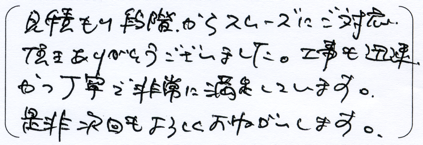 見積もり段階からスムーズにご対応
頂きありがとうございました。工事も迅速
かつ丁寧で非常に満足しています。
是非次回もよろしくおねがいします。